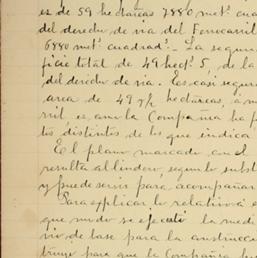 es de 59 hectáreas 7880 metˢ cua
del derecho de via del Ferrocarril
6880 metˢ cuadradˢ.- La segun
ficie total de 49 hectˢ 5, de la
del derecho de via. Es casi segur
area de 49 ½ hectáreas, á m
rril, es ano la Compañia ha p
tos distintos de los que indica
El plano marcado con el
resulta al lindero, segun lo subst
y puede servir para acompañar
Para explicar lo relativo á e
que modo se ejecutó la medi
vio de base para la construcc
trujo para que la Compañia